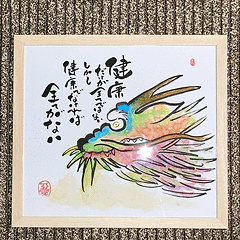 健康
だけが全てではない
しかし
健康でなければ
全てがない